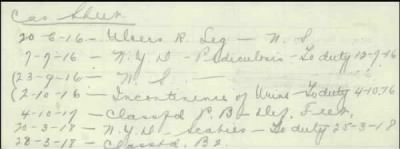 Cas Sheet
20-6-16 - Ulcers R. Leg - N.S.
7-9-16 - N.Y.D - Pediculosis - To duty 12-9-16
(23-9-16 - N.S. -
(2-10-16 - Incontinence of Urine - To duty 4-10-16
4-10-17 - Classfd P.B - Def. Feet.
20-3-18 - N.Y.D - Scabies - To duty 25-3-18
28-3-18 - Classfd. B2